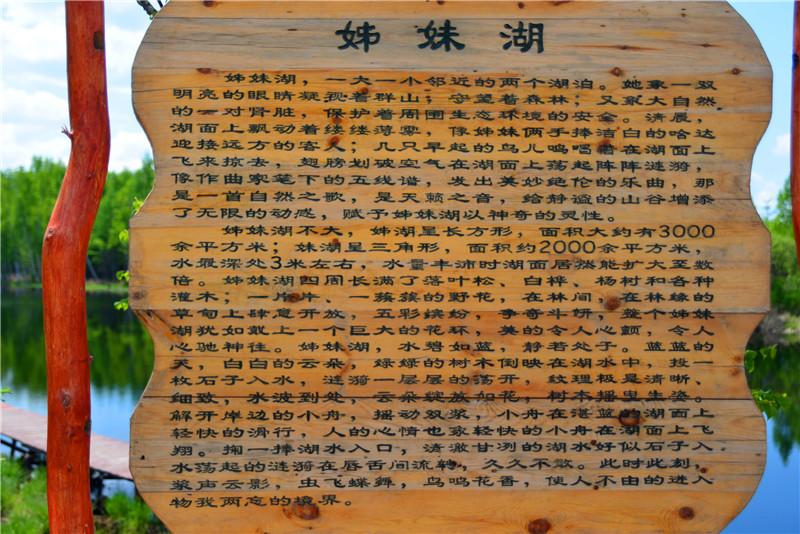 姊妹湖
姊妹湖，一大一小邻近的两个湖泊。她象一双
明亮的眼睛凝视着群山；守望着森林；又象大自然
的一对肾脏，保护着周围生态环境的安全。清晨，
湖面上飘动着缕缕薄雾，像姊妹俩手捧洁白的哈达
迎接远方的客人；几只早起的鸟儿鸣唱着在湖面上
飞来掠去，翅膀划破空气在湖面上荡起阵阵涟漪，
像作曲家笔下的五线谱，发出美妙绝伦的乐曲，那
是一首自然之歌，是天赖之音，给静谧的山谷增添
了无限的动感，赋予姊妹湖以神奇的灵性。
姊妹湖不大，姊湖呈长方形，面积大约有3000
余平方米；妹湖呈三角形，面积约2000余平方米，
水最深处3米左右，水量丰沛时湖面居然能扩大至数
倍。姊妹湖四周长满了落叶松、白桦、杨树和各种
灌木；一片片、一簇簇的野花，在林间，在林缘的
草甸上肆意开放，五彩缤纷，争奇斗妍，整个姊妹
湖犹如戴上一个巨大的花环，美的令人心颤，令人
心驰神往。姊妹湖，水碧如蓝，静若处子。蓝蓝的
天，白白的云朵，绿绿的树木倒映在湖水中，投一
枚石子入水，涟漪一层层的荡开，纹理极是清晰、
细致，水波到处，云朵绽放如花，树木摇里生姿。
解开岸边的小舟，摇动双桨，小舟在湛蓝的湖面上
轻快的滑行，人的心情也象轻快的小舟在湖面上飞
翔。掬一捧湖水入口，清澈甘冽的湖水好似石子入
水荡起的涟漪在唇舌间流转，久久不散。此时此刻，
桨声云影，虫飞蝶舞，鸟鸣花香，使人不由的进入
物我两忘的境界。